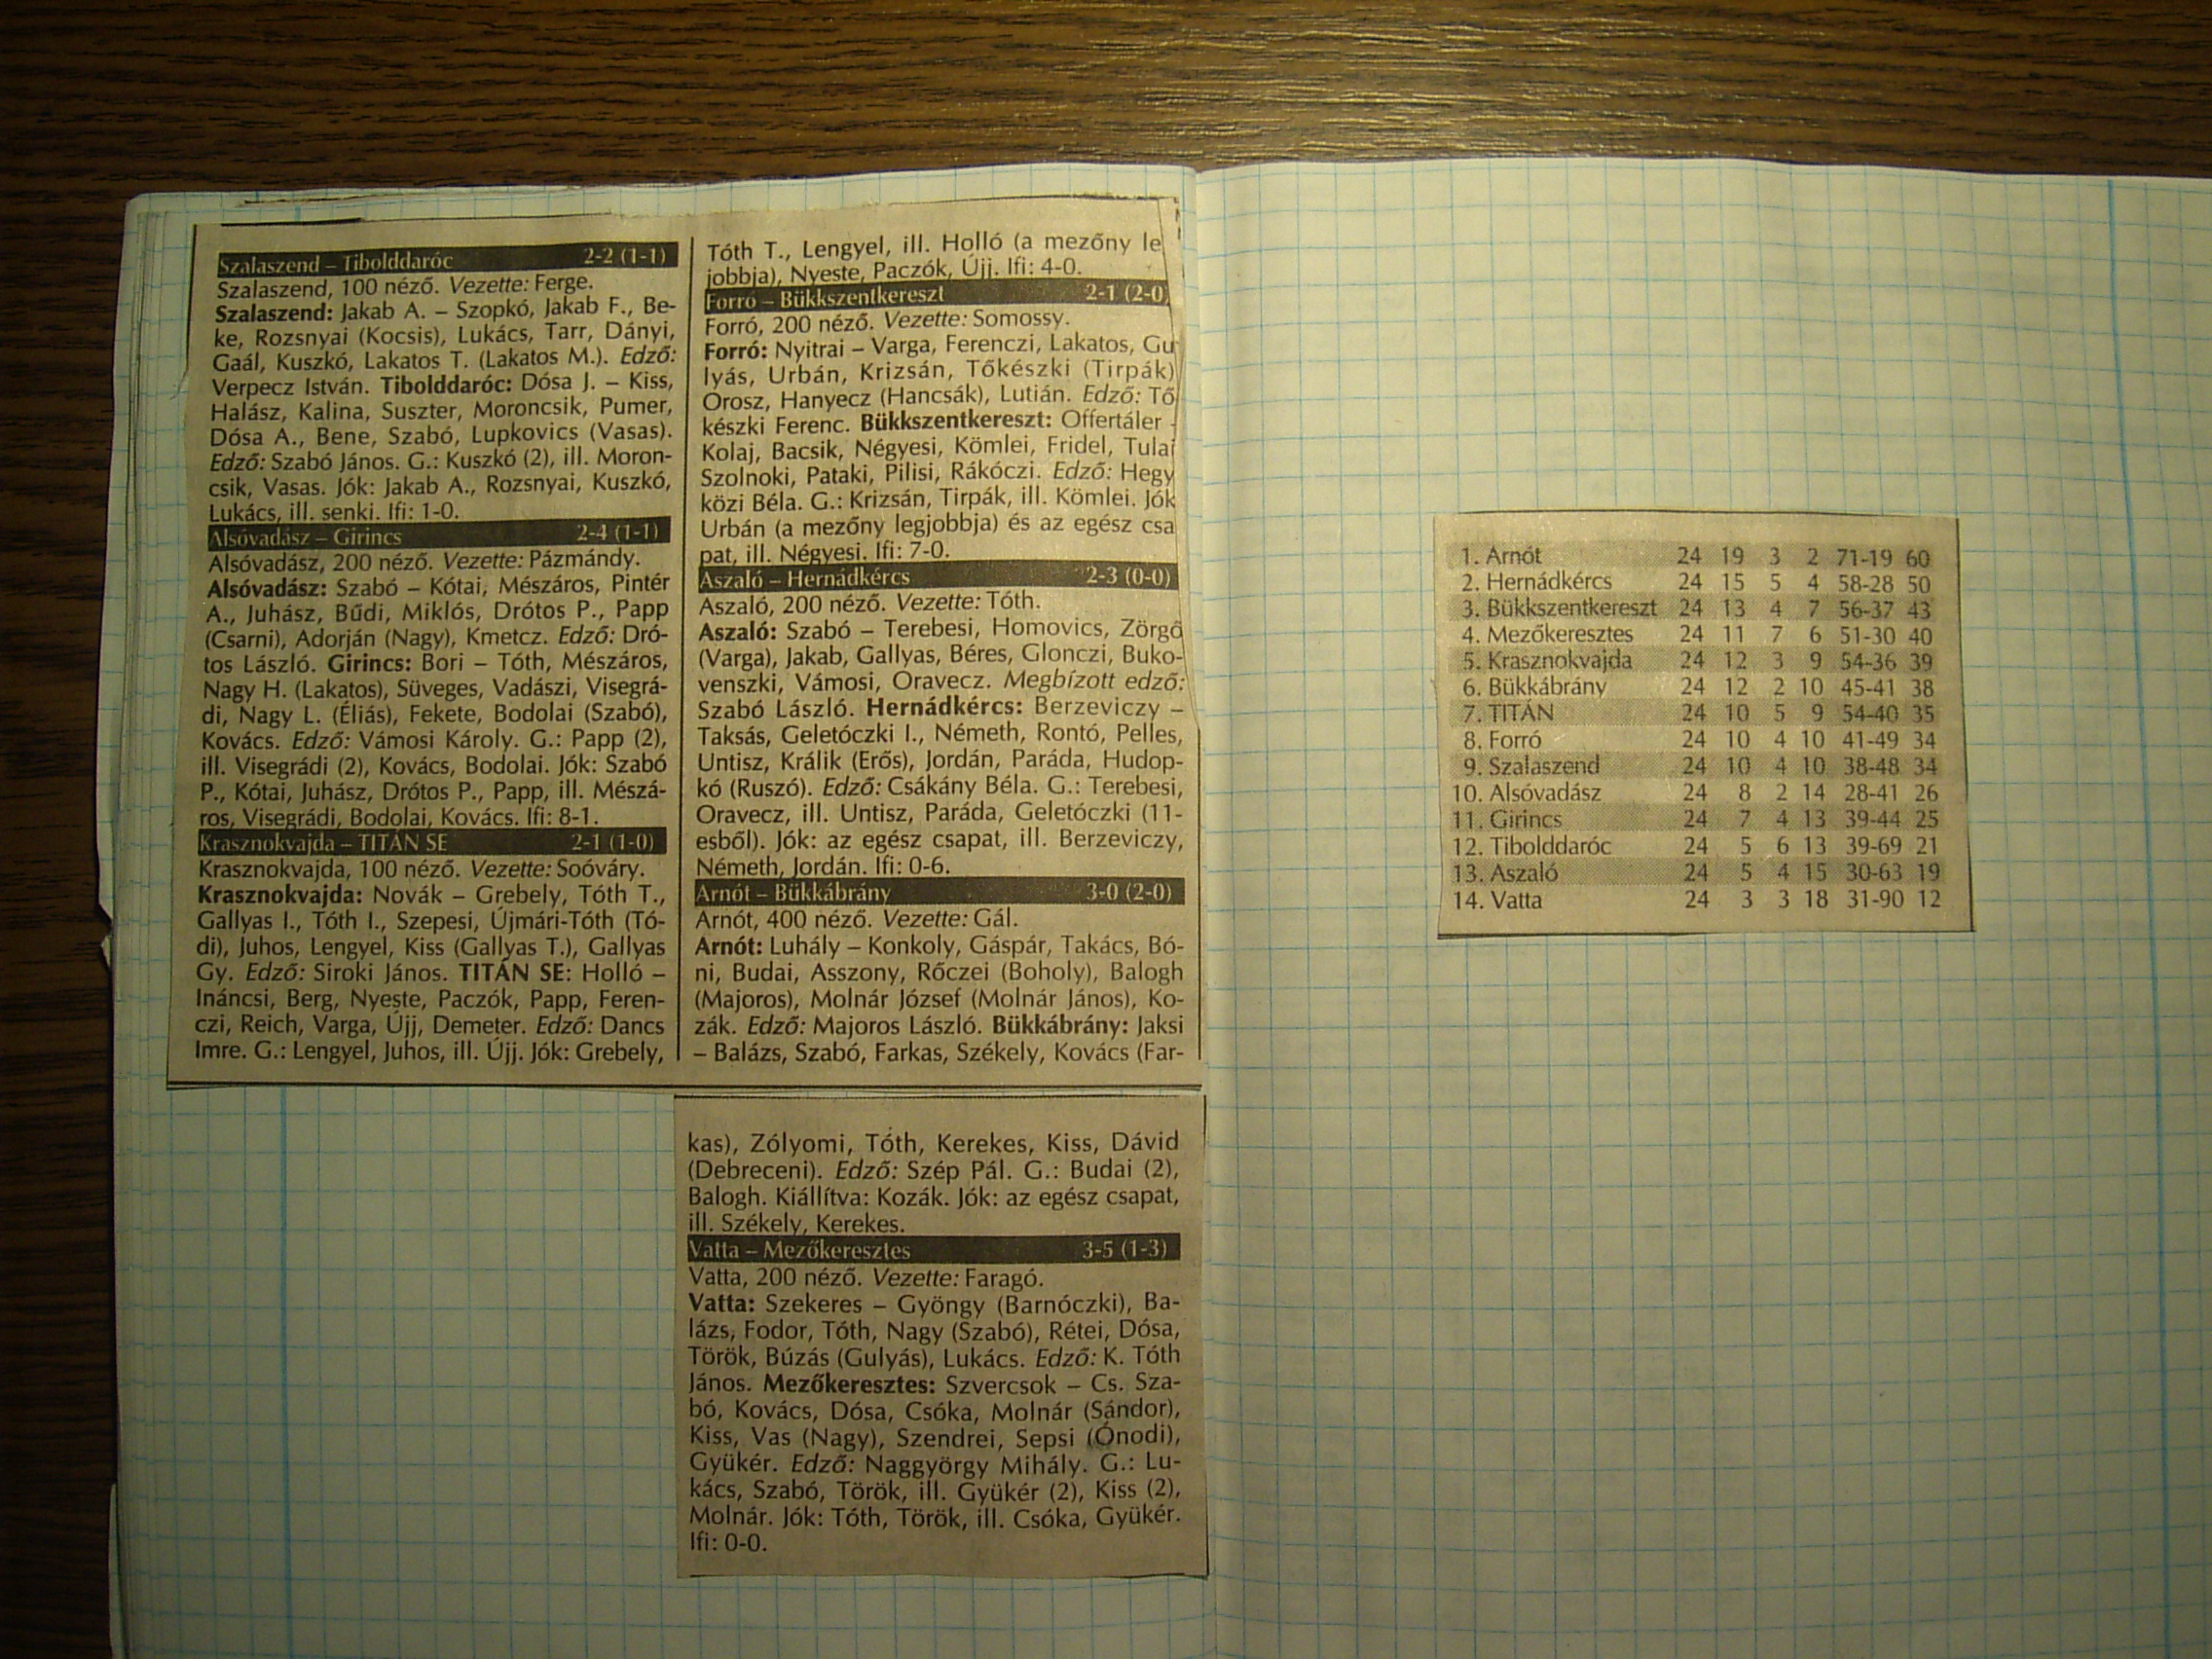 Szalaszend – Tibolddaróc 2-2 (1-1)
Szalaszend, 100 néző. Vezette: Ferge.
Szalaszend: Jakab A. – Szopkó, Jakab F., Be-
ke, Rozsnyai (Kocsis), Lukács, Tarr, Dányi,
Gaál, Kuszkó, Lakatos T. (Lakatos M.). Edző:
Verpecz István. Tibolddaróc: Dósa J. – Kiss,
Halász, Kalina, Suszter, Moroncsik, Pumer,
Dósa A., Bene, Szabó, Lupkovics (Vasas).
Edző: Szabó János. G.: Kuszkó (2), ill. Moron-
csik, Vasas. Jók: Jakab A., Rozsnyai, Kuszkó,
Lukács, ill. senki. Ifi: 1-0.
Alsóvadász – Girincs 2-4 (1-1)
Alsóvadász, 200 néző. Vezette: Pázmándy.
Alsóvadász: Szabó – Kótai, Mészáros, Pintér
A., Juhász, Bűdi, Miklós, Drótos P., Papp
(Csarni), Adorján (Nagy), Kmetcz. Edző: Dró-
tos László. Girincs: Bori – Tóth, Mészáros,
Nagy H. (Lakatos), Süveges, Vadászi, Visegrá-
di, Nagy L. (Éliás), Fekete, Bodolai (Szabó),
Kovács. Edző: Vámosi Károly. G.: Papp (2),
ill. Visegrádi (2), Kovács, Bodolai. Jók: Szabó
P., Kótai, Juhász, Drótos P., Papp, ill. Mészá-
ros, Visegrádi, Bodolai, Kovács. Ifi: 8-1.
Krasznokvajda – TITÁN SE 2-1 (1-0)
Krasznokvajda, 100 néző. Vezette: Soóváry.
Krasznokvajda: Novák – Grebely, Tóth T.,
Gallyas I., Tóth I., Szepesi, Újmári-Tóth (Tó-
di), Juhos, Lengyel, Kiss (Gallyas T.), Gallyas
Gy. Edző: Siroki János. TITÁN SE: Holló –
Ináncsi, Berg, Nyeste, Paczók, Papp, Feren-
czi, Reich, Varga, Újj, Demeter. Edző: Dancs
Imre. G.: Lengyel, Juhos, ill. Újj. Jók: Grebely,
Tóth T., Lengyel, ill. Holló (a mezőny le
jobbja), Nyeste, Paczók, Újj. Ifi: 4-0.
Forró – Bükkszentkereszt 2-1 (2-0)
Forró, 200 néző. Vezette: Somossy.
Forró: Nyitrai – Varga, Ferenczi, Lakatos, Gu
lyás, Urbán, Krizsán, Tőkészki (Tirpák)
Orosz, Hanyecz (Hancsák), Lutián. Edző: Tő
készki Ferenc. Bükkszentkereszt: Offertáler -
Kolaj, Bacsik, Négyesi, Kömlei, Fridel, Tulaj
Szolnoki, Pataki, Pilisi, Rákóczi. Edző: Hegy
közi Béla. G.: Krizsán, Tirpák, ill. Kömlei. Jók
Urbán (a mezőny legjobbja) és az egész csa
pat, ill. Négyesi. Ifi: 7-0.
Aszaló – Hernádkércs 2-3 (0-0)
Aszaló, 200 néző. Vezette: Tóth.
Aszaló: Szabó – Terebesi, Homovics, Zörgő
(Varga), Jakab, Gallyas, Béres, Glonczi, Buko-
venszki, Vámosi, Oravecz. Megbízott edző:
Szabó László. Hernádkércs: Berzeviczy –
Taksás, Geletóczki I., Németh, Rontó, Pelles,
Untisz, Králik (Erős), Jordán, Paráda, Hudop-
kó (Ruszó). Edző: Csákány Béla. G.: Terebesi,
Oravecz, ill. Untisz, Paráda, Geletóczki (11-
esből). Jók: az egész csapat, ill. Berzeviczy,
Németh, Jordán. Ifi: 0-6.
Arnót – Bükkábrány 3-0 (2-0)
Arnót, 400 néző. Vezette: Gál.
Arnót: Luhály – Konkoly, Gáspár, Takács, Bó-
ni, Budai, Asszony, Rőczei (Boholy), Balogh
(Majoros), Molnár József (Molnár János), Ko-
zák. Edző: Majoros László. Bükkábrány: Jaksi
– Balázs, Szabó, Farkas, Székely, Kovács (Far-
kas), Zólyomi, Tóth, Kerekes, Kiss, Dávid
(Debreceni). Edző: Szép Pál. G.: Budai (2),
Balogh. Kiállítva: Kozák. Jók: az egész csapat,
ill. Székely, Kerekes.
Vatta – Mezőkeresztes 3-5 (1-3)
Vatta, 200 néző. Vezette: Faragó.
Vatta: Szekeres – Gyöngy (Barnóczki), Ba-
lázs, Fodor, Tóth, Nagy (Szabó), Rétei, Dósa,
Török, Búzás (Gulyás), Lukács. Edző: K. Tóth
János. Mezőkeresztes: Szvercsok – Cs. Sza-
bó, Kovács, Dósa, Csóka, Molnár (Sándor),
Kiss, Vas (Nagy), Szendrei, Sepsi (Ónodi),
Gyükér. Edző: Naggyörgy Mihály. G.: Lu-
kács, Szabó, Török, ill. Gyükér (2), Kiss (2),
Molnár. Jók: Tóth, Török, ill. Csóka, Gyükér.
Ifi: 0-0.
1. Arnót 24 19 3 2 71-19 60
2. Hernádkércs 24 15 5 4 58-28 50
3. Bükkszentkereszt 24 13 4 7 56-37 43
4. Mezőkeresztes 24 11 7 6 51-30 40
5. Krasznokvajda 24 12 3 9 54-36 39
6. Bükkábrány 24 12 2 10 45-41 38
7. TITÁN 24 10 5 9 54-40 35
8. Forró 24 10 4 10 41-49 34
9. Szalaszend 24 10 4 10 38-48 34
10. Alsóvadász 24 8 2 14 28-41 26
11. Girincs 24 7 4 13 39-44 25
12. Tibolddaróc 24 5 6 13 39-69 21
13. Aszaló 24 5 4 15 30-63 19
14. Vatta 24 3 3 18 31-90 12